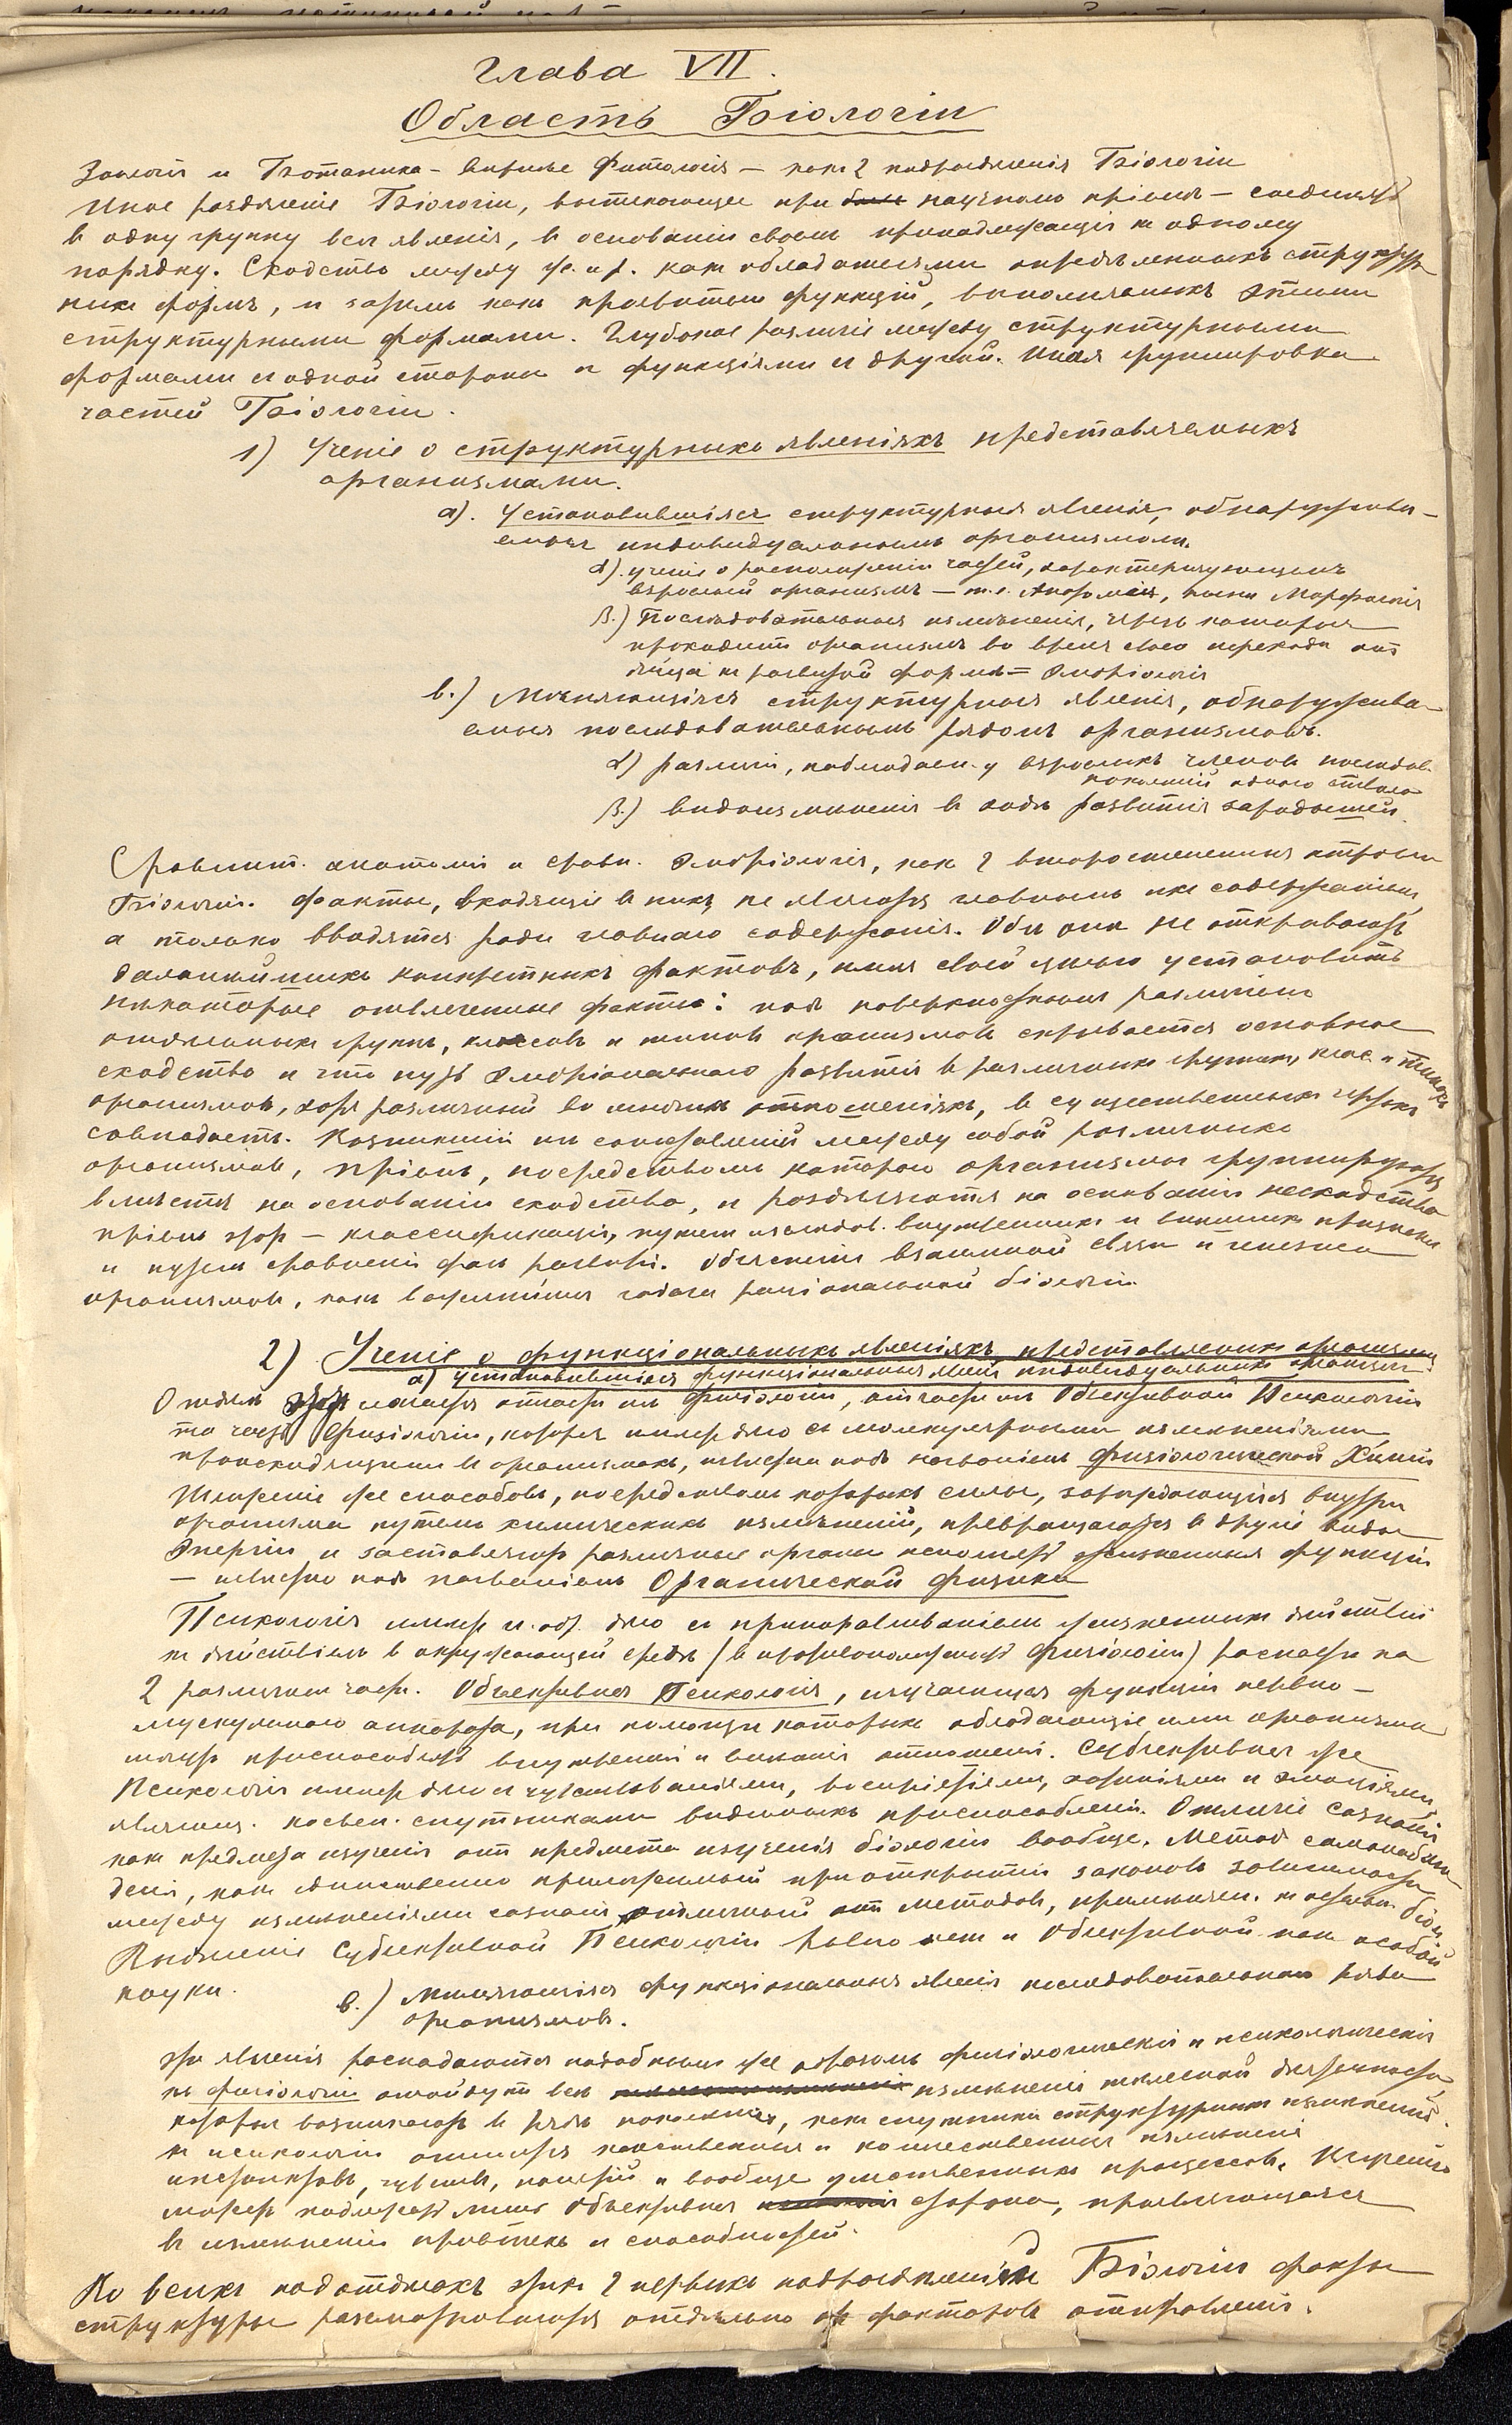 Глава VII.
Область Біологіи
Зоологія и Ботаника – вѣрнѣе Фитологія – какъ 2 подраздѣленія Біологіи
Иное раздѣленіе Біологіи, вытекающее при научномъ пріемѣ – соединять
въ одну группу всѣ явленія, въ основаніи своемъ принадлежащія къ одному
порядку. Сходство между ж. и р. какъ обладателями опредѣленныхъ структур
ныхъ формъ, и затѣмъ какъ функцій, выполняемыхъ этими
структурными формами. Глубокое различіе между структурными
формами съ одной стороны и функціями съ другой. Иная группировка
частей Біологіи.
1) Ученіе о структурныхъ явленіяхъ представляемыхъ
организмами.
a). Установившіяся структурныя явленія, обнаружива–
емыя индивидуальнымъ организмомъ.
α). ученіе о расположеніи частей, характеризующемъ
взрослый организмъ – т.е. Анатомія, Морфологія
β.) Послѣдовательныя измѣненія, чрезъ которыя
проходитъ организмъ во время своего перехода отъ
яйца къ развитой формѣ = Эмбріологія
b.) Мѣняющіяся структурныя явленія, обнаружива–
емыя послѣдовательнымъ рядомъ организмовъ.
α) различія, наблюдаем. у взрослыхъ членовъ послѣдов.
поколѣній одного ствола
β.) видоизмѣненія въ ходѣ развитія зародышей.
Сравнит. анатомія и сравн. эмбріологія, какъ 2 второстепенныя отрасли
Біологіи. Факты, входящіе въ нихъ, не являются главнымъ ихъ содержаніемъ,
а только вводятся ради главнаго содержанія. Обѣ онѣ не открываютъ
дальнѣйшихъ конкретныхъ фактовъ, имѣя своей цѣлью установить
нѣкоторые отвлеченные факты: подъ поверхностнымъ различіемъ
отдѣльныхъ группъ, классовъ и типовъ организмовъ скрывается основное
сходство и что путь эмбріональнаго развитія въ различныхъ группахъ, клас. и типахъ
организмовъ, хотя различный во многихъ отношеніяхъ, въ существенныхъ чертахъ
совпадаетъ. Возникшій изъ сопоставленій между собой различныхъ
организмовъ, пріемъ, посредствомъ котораго организмы группируются
вмѣстѣ на основаніи сходства, и раздѣляются на основаніи несходства
пріемъ этотъ – классификація, путемъ изслѣдов. внутреннихъ и внѣшнихъ признаковъ
и путемъ сравненія фазъ развитія. Объясненіе взаимной связи и генезиса
организмовъ, какъ задача раціональной біологіи.
2) Ученіе о функціональныхъ явленіяхъ, представляемыхъ организмами
a) Установившіяся функціональныя явленія индивидуальныхъ организм.
Отдѣлъ этотъ является отчасти изъ Физіологіи, отчасти изъ Объективной Психологіи
та часть Физіологіи, которая имѣетъ дѣло съ молекулярными измѣненіями,
происходящими въ организмахъ, извѣстна подъ названіемъ Физіологической Химіи
Изученіе же способовъ, посредствомъ которыхъ силы, зарождающіяся внутри
организма путемъ химическихъ измѣненій, превращаются въ другіе виды
энергіи и заставляютъ различные органы исполнять жизненныя функціи
– извѣстно подъ названіемъ Органической Физики
Психологія имѣетъ дѣло съ жизненныхъ дѣйствій
къ дѣйствіямъ въ окружающей средѣ (въ противоположность Физіологіи) распадается на
2 различныя части. Объективная Психологія, изучающая функціи нервно–
мускульнаго аппарата, при помощи которыхъ обладающіе имъ организмы
могутъ приспособлять внутреннія и внѣшнія отношенія. Субъективная же
Психологія имѣетъ дѣло съ чувствованіями, воспріятіями, и эмоціями
спутниками видимыхъ приспособленій. Отличіе сознанія
какъ предмета изученія отъ предмета изученія біологіи вообще. Методъ самонаблю
денія, какъ единственно примѣнимый при открытіи законовъ зависимости
между измѣненіями сознанія, отличный отъ методовъ, примѣняем. къ остальн. біол.
Выдѣленіе Субъективной Психологіи и Объективной какъ особой
науки.
b.) Мѣняющіяся функціональныя явленія послѣдовательнаго ряда
организмовъ.
Эти явленія распадаются подобнымъ же образомъ физіологическія и психологическія
къ физіологіи отойдутъ всѣ измѣненія тѣлесной дѣятельности,
которыя возникаютъ въ рядѣ поколѣній, какъ спутники структурныхъ измѣненій.
къ психологіи относятся качественныя и количественныя измѣненія
инстинктовъ, чувствъ, понятій и вообще умственныхъ процессовъ.
можетъ подлежать лишь Объективная сторона, проявляющаяся
въ измѣненіи привычекъ и способностей.
Во всѣхъ подотдѣлахъ этихъ 2 первыхъ подраздѣленій Біологіи факты
структуры разсматриваются отдѣльно отъ фактовъ отправленія.